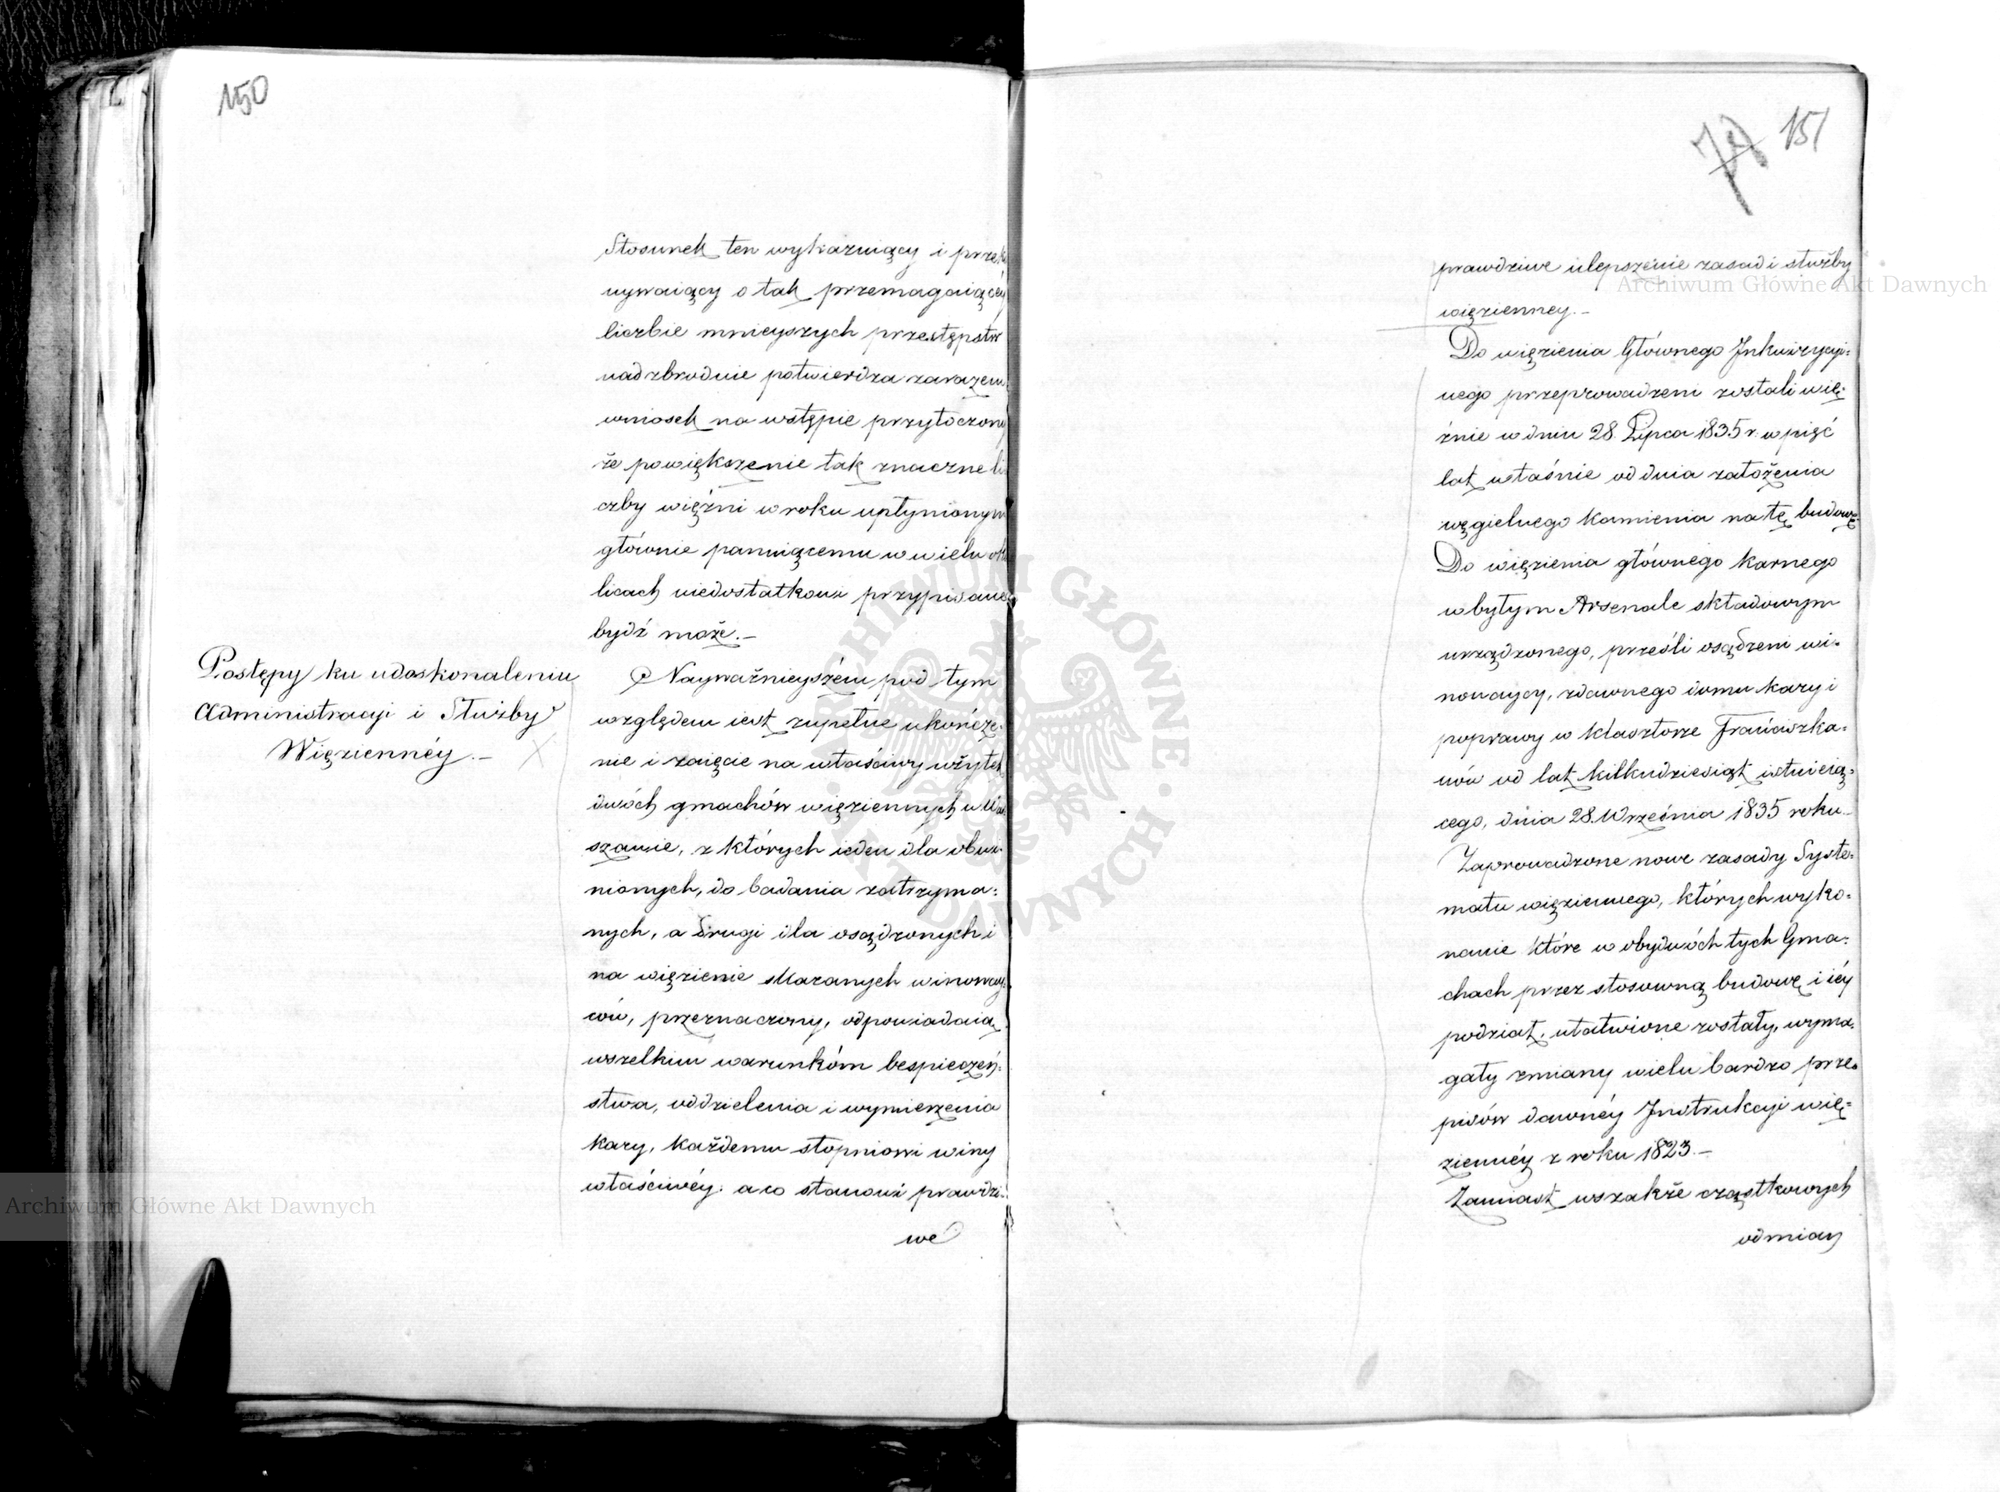 150
Stosunek ten wykazuiący i prze
uywaiący o tak przemagaiącéy
liczbie mnieyszych przestępstw
nad zbrodnie potwierdza zarazem
wniosek na wstępie przytoczony
że powiększenie tak znaczne li
czby więźni w roku upłynionym
głównie panuiącemu w wielu oko
licach niedostatkowi przypisane
bydź może.—
Postępy ku udoskonaleniu
Administracyi i Służby
Więziennéy.—
Nayważnieyszém pod tym
względem iest zupełne ukończe:
nie i zaięcie na właściwy użytek
dwóch gmachów więziennych w War
szawie, z których ieden dla obwi:
nionych, do badania zatrzyma:
nych, a drugi dla osądzonych i
na więzienie skazanych winoway:
ców, przeznaczony, odpowiadaią
wszelkim warunkóm bespieczeń:
stwa, oddzielenia i wymierzenia
kary, każdemu stopniowi winy
właściwéy. a co stanowi prawdzi:
we
79 151
prawdziwe ulepszenie zasad i służby
więzienney.—
Do więzienia Głównego Inkwizycyi:
nego przeprowadzeni zostali wię:
źnie w dniu 28. Lipca 1835 r. w pięć
lat właśnie od dnia założenia
węgielnego kamienia na tę budowę
Do więzienia głównego karnego
w byłym Arsenale składowym
urządzonego, przeszli osądzeni wi:
nowaycy, z dawnego domu kary i
poprawy w klasztorze Franciszka:
nów od lat kilkudziesiąt istnieią:
cego, dnia 28. Września 1835 roku.—
Zaprowadzone nowe zasady Syste:
matu więziennego, których wyko:
nanie które w obydwóch tych Gma:
chach przez stosowną budowę i iéy
podział, ułatwione zostały, wyma:
gały zmiany wielu bardzo prze:
pisów dawnéy Instrukcyi wię:
ziennéy z roku 1823.—
Zamiast wszakże cząstkowych
odmian
Archiwum Główne Akt Dawnych
Archiwum Główne Akt Dawnych
ARCHIWUM GŁÓWNE AKT DAWNYCH